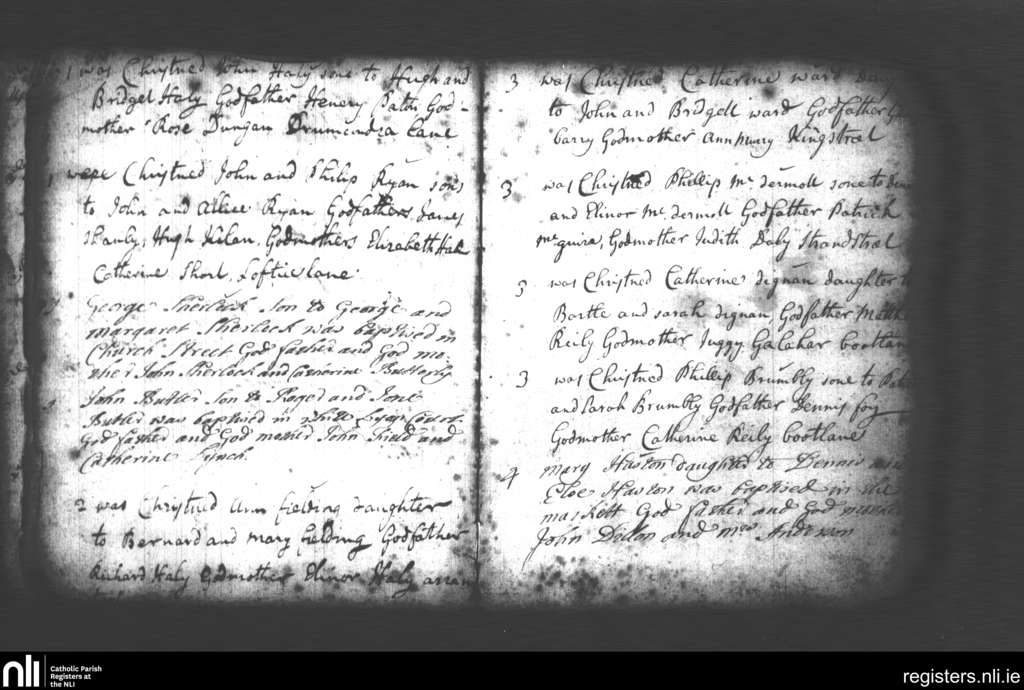 1 was Christned John Haly sone to Hugh and
Bridget Haly Godfather Henery Paton God-
mother Rose Dungan Drumcondra lane
1 were Christned John and Philip Ryan sons
to John and Allice Ryan Godfathers James
Shanly, Hugh Kelan, Godmothers Elizabeth
Catherine Short, Loftus lane
George Sherlock Son to George and
margaret Sherlock was baptised in
Church Street God father and God mo-
ther John Sherlock and Catherine Butterly
John Butler Son to and
Butler was baptised in Court
God father and God mother John Shield and
Catherine Lynch
2 was Christned Ann fielding daughter
to Bernard and Mary fielding Godfather
Richard Haly Godmother Elinor Haly arran
3 was Christned Catherine ward
to John and Bridgett ward Godfather
barry Godmother Ann Murry Kingstret
3 was Christned Phillip Mc dermott sone to
and Elinor Mc dermott Godfather Patrick
Mc guire, Godmother Judith Daly Strandstret
3 was Christned Catherine dignan daughter
Bartle and sarah dignan Godfather Matth
Reily Godmother Juggy Galahar bootlan
3 was Christned Phillip Brumbly sone to
and sarah Brumbly Godfather Dennis foy
Godmother Catherine Reily bootlane
4 mary Haston daughter to Dennis
Eloe Haston was baptised in the
markett God father and God mother
John Dillon and mrs Anderson
nli
Catholic Parish
Registers at
the NLI
registers.nli.ie